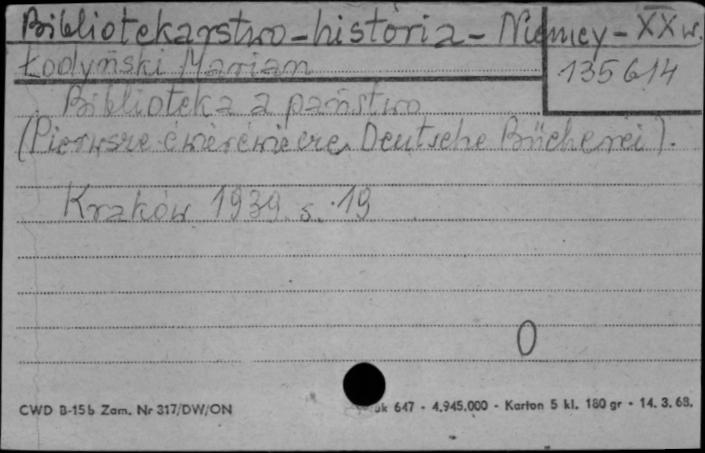 Bibliotekarstwo - historia - Niemcy - XX w.
Łodyński Marian
135614
Biblioteka a państwo
(Pierwsze ćwierćwiecze Deutsche Bücherei).
Kraków 1939. s. 19
0
CWD B-15b Zam. Nr 317/DW/ON
647 - 4.945.000 - Karton 5 kl. 180 gr - 14. 3. 68.